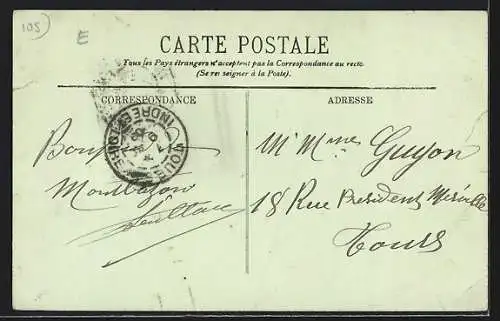 105
E
CARTE POSTALE
Tous les Pays étrangers n'acceptent pas la Correspondance au recto.
(Se renseigner à la Poste).
CORRESPONDANCE
ADRESSE
INDRE ET LOIRE
Montbazon
Mr Mme Guyon
18 Rue Président Merville
Tours